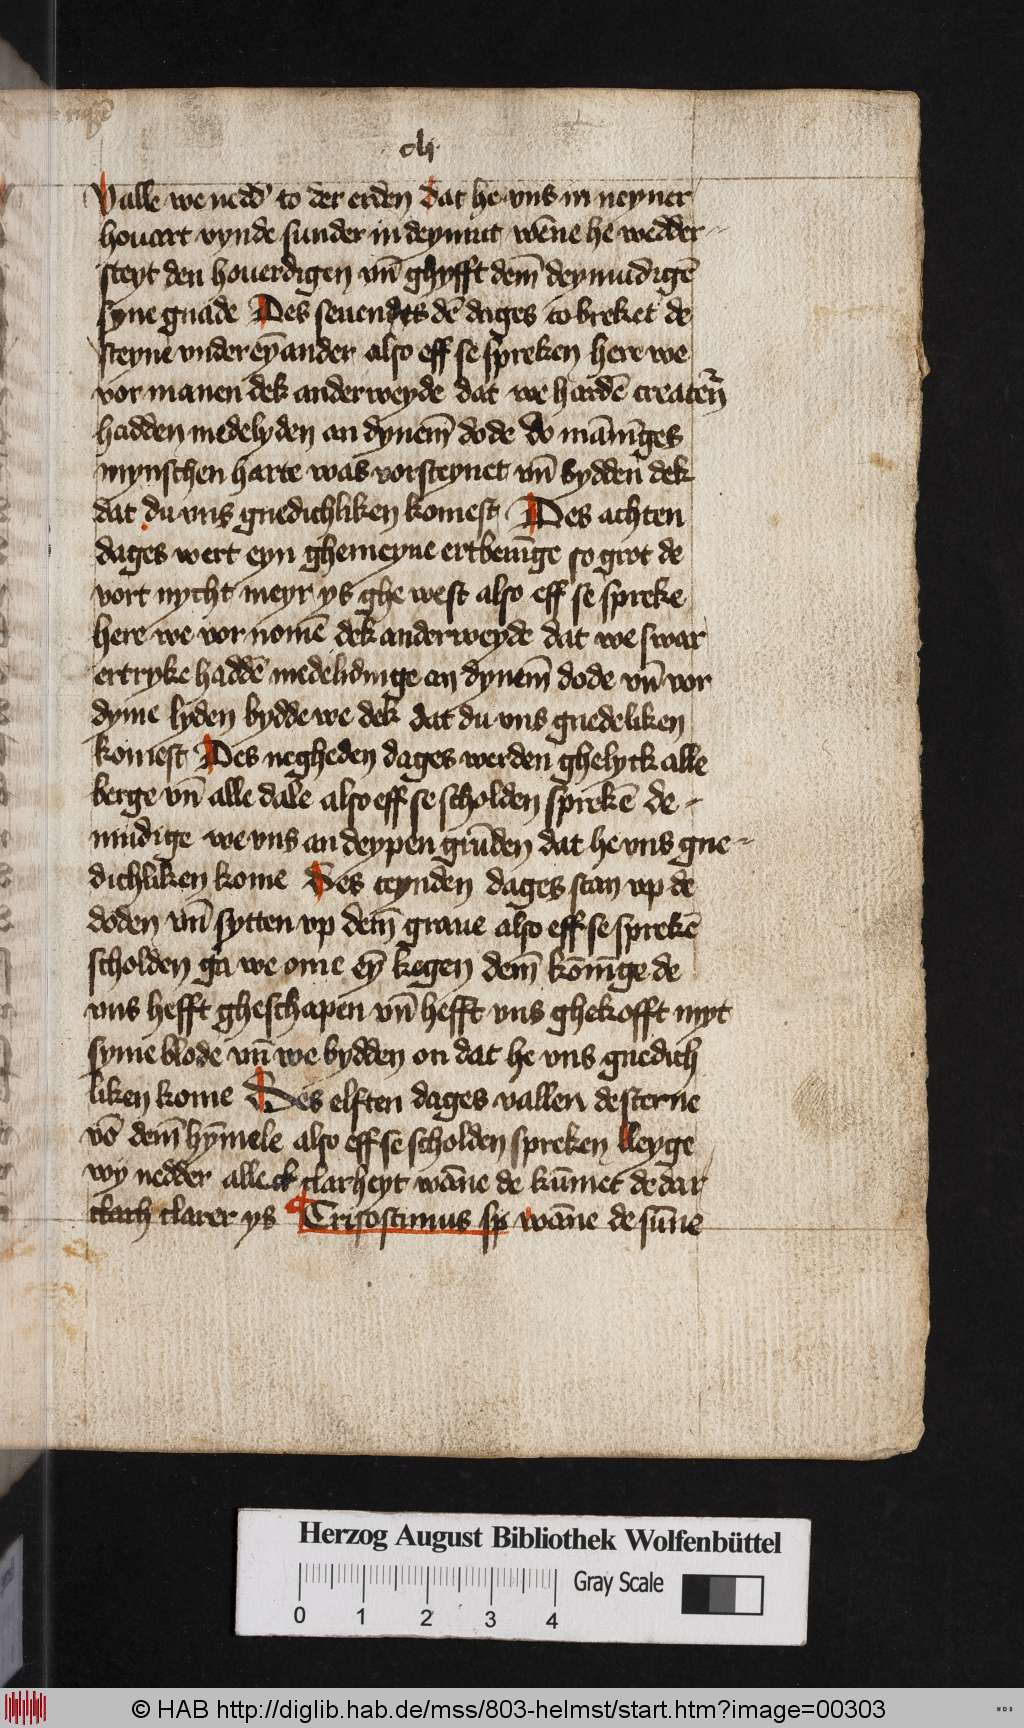 clj
Valle we nedd' to der erden dat he vns in neyner
houart vynde sunder in deymut wēne he wedder
steyt den houerdigen vn̄ ghyfft dem̄ deymudigē
syne gnade Des seuendes dē dages to breket de
steyne vnder eȳander also eff se spreken here we
vor manen dek anderweyde dat we hardē createn̄
hadden medelyden an dynem̄ dode do mānīges
mynschen harte was vorsteynet vn̄ bydden dek
dat du vns gnedichliken komest Des achten
dages wert eyn ghemeyne ertbeuīge so grot de
vort nycht meyr ys ghe west also eff se spreke
here we vor nomē dek anderweyde dat we swar
ertryke haddē medelidinge an dynem̄ dode vn̄ vor
dyme lyden bydde we dek dat du vns gnedeliken
komest Des negheden dages werden ghelyck alle
berge vn̄ alle dale also eff se scholden sprekē de
mudige we vns an deypen grūden dat he vns gne
dichliken kome Des teynden dages stan vp de
doden vn̄ sytten vp dem̄ graue also eff se sprekē
scholden ga we ome eȳ kegen dem̄ kōnīge de
vns hefft gheschapen vn̄ hefft vns ghekofft myt
syme blode vn̄ we bydden on dat he vns gnedich
liken kome Des elften dages vallen de sterne
vō dem̄ hȳmele also eff se scholden spreken lleyge
wy nedder alle clarheyt wāne de kūmet de dar
clarer ys Crisostimus sp wāne de sūne
Herzog August Bibliothek Wolfenbüttel
Gray Scale
0 1 2 3 4
© HAB http://diglib.hab.de/mss/803-helmst/start.htm?image=00303